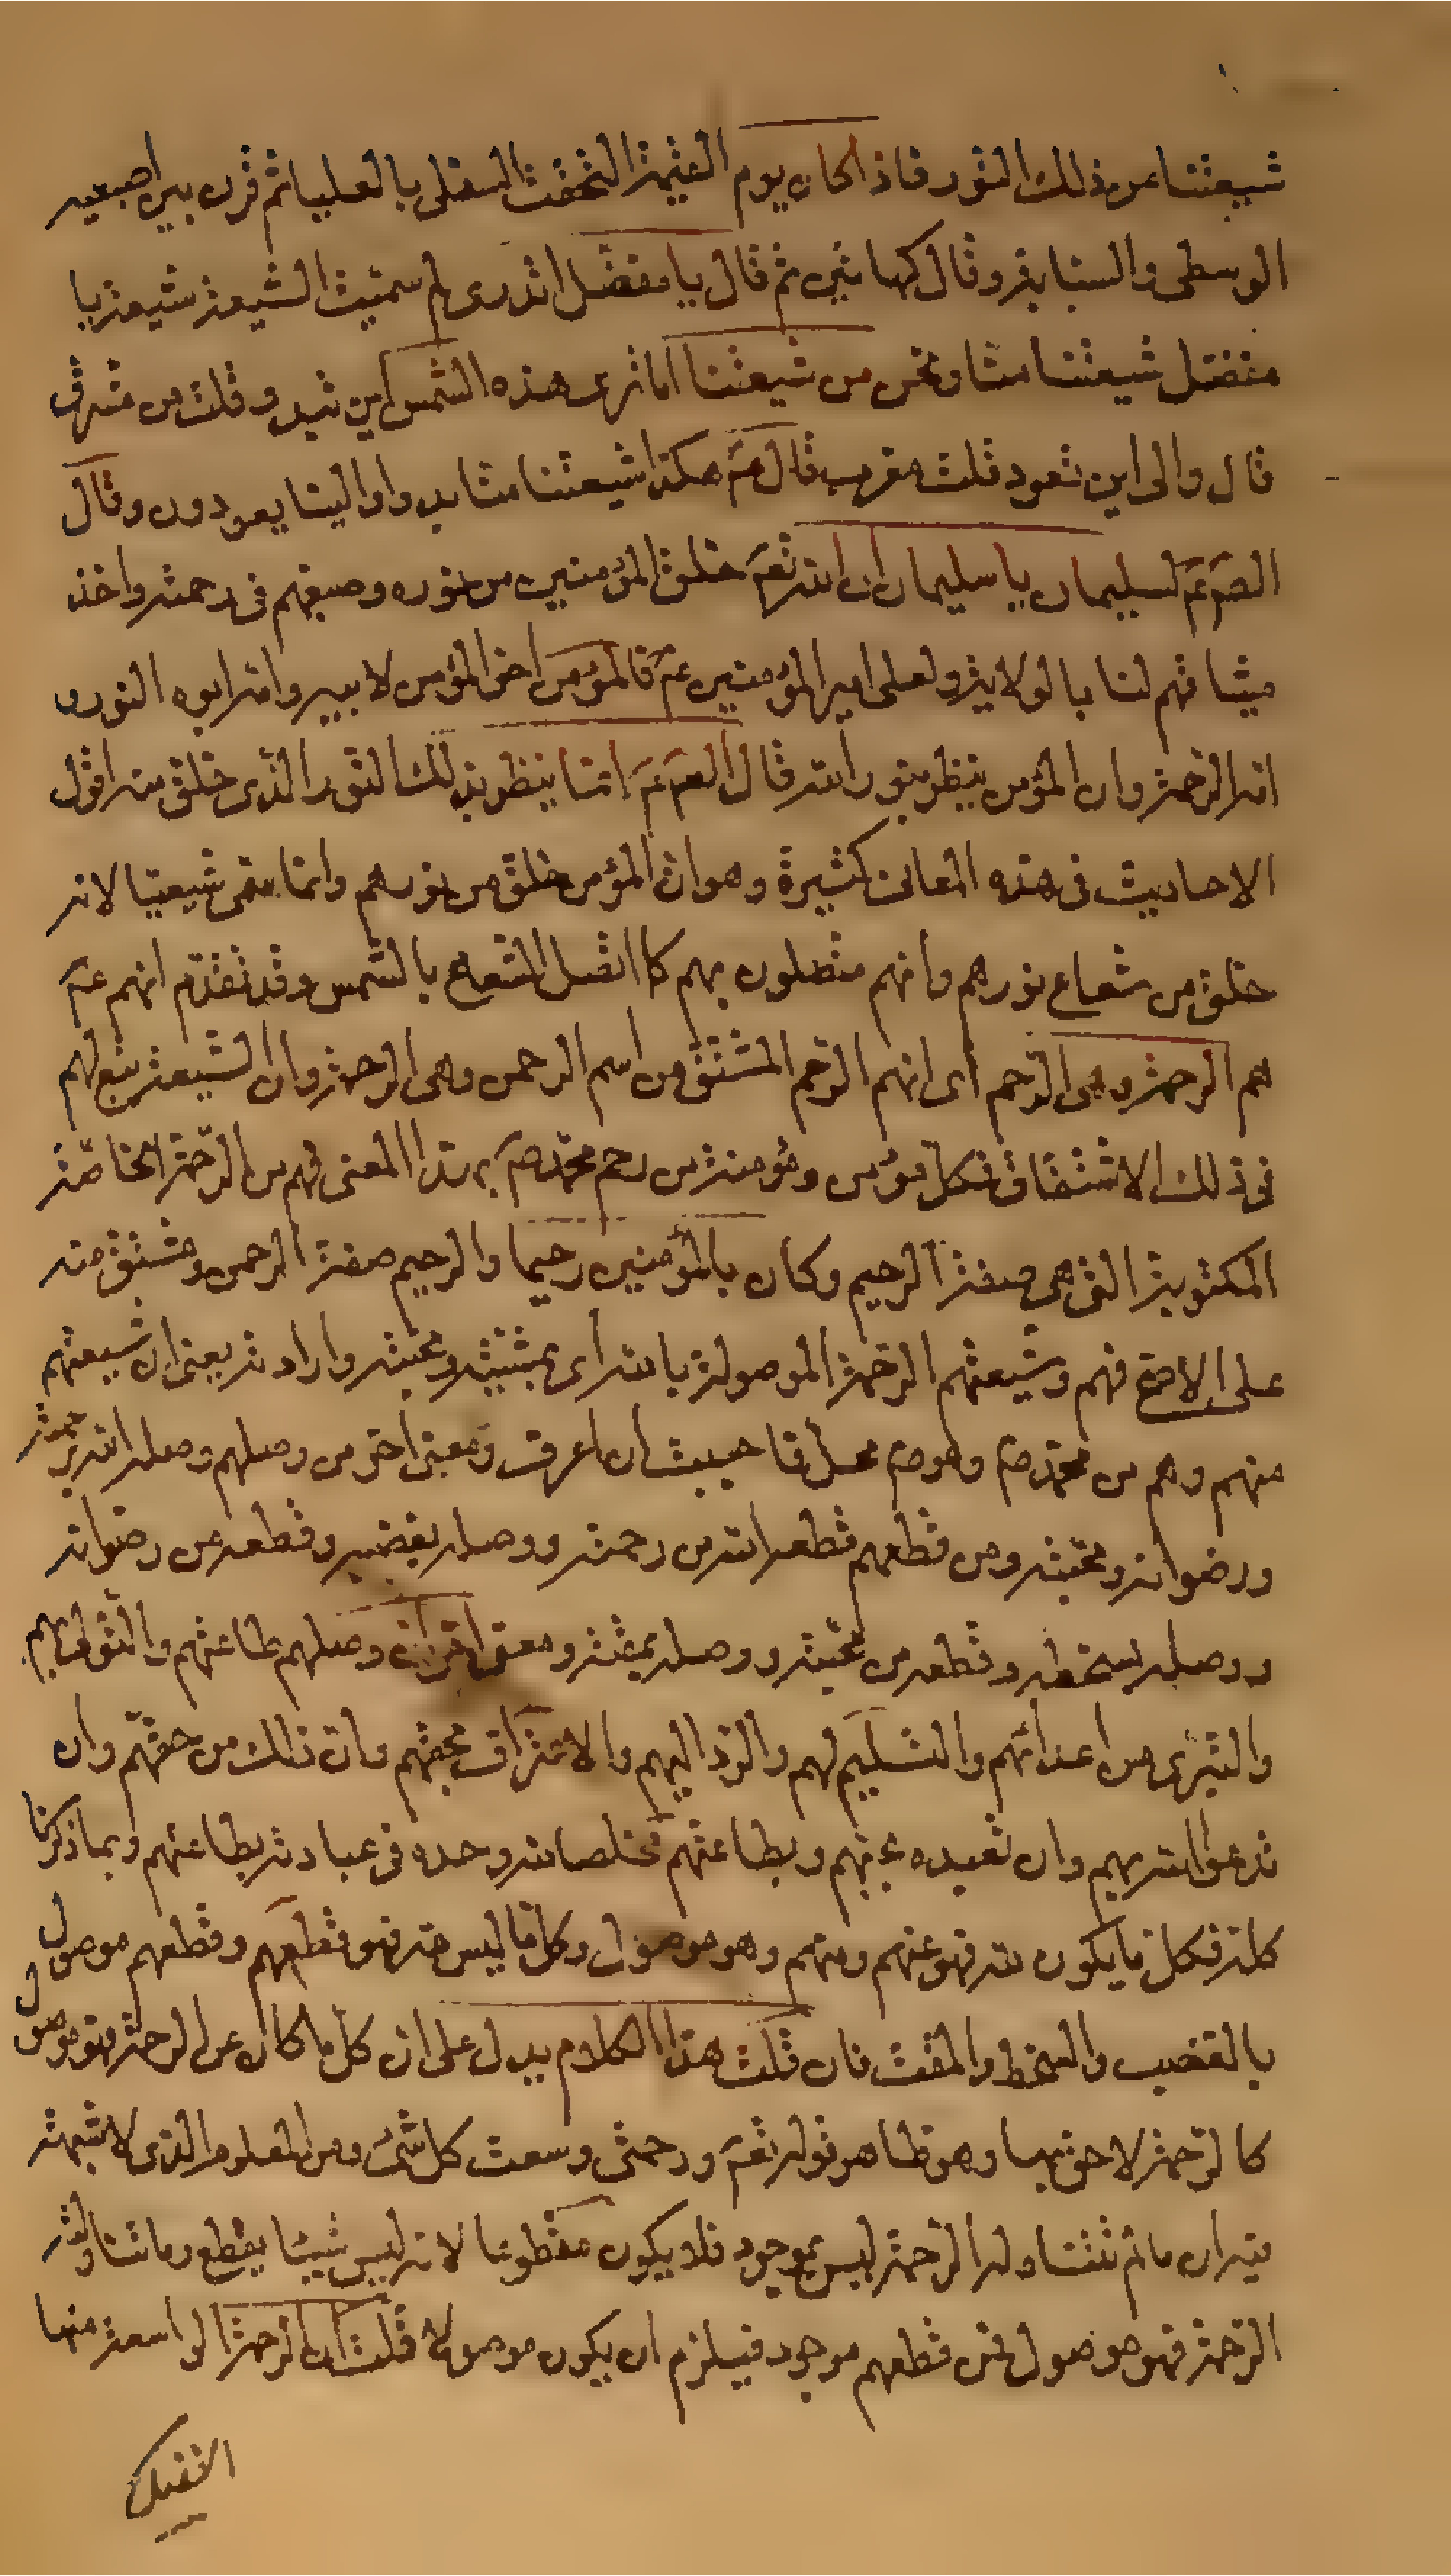 شيعتنا من ذلك النور فاذا كان يوم القيمة التحقت السفلى بالعليا ثم قرن بين اصبعيه
الوسطى والسبابة وقال كهاتين ثم قال يا مفضل اتدرى لم سميت الشيعة شيعة يا
مفضل شيعتنا منا ونحن من شيعتنا اما ترى هذه الشمس اين تبدو قلت من مشرق
قال والى اين تعود قلت مغرب قال عم هكذا شيعتنا منا بدوا والينا يعودون وقال
الصم عم لسليمان يا سليمان ان الله تعم خلق المؤمنين من نوره وصبغهم فى رحمته واخذ
ميثاقهم لنا بالولاية ولعلى امير المؤمنين عم فالمؤمن اخ المؤمن لابيه وامه ابوه النور و
امه الرحمة وان المؤمن ينظر بنور الله قال الصم عم انما ينظر بذلك النور الذى خلق منه اقول
الاحاديث فى هذه المعانى كثيرة وهو ان المؤمن خلق من نورهم وانما سمى شيعيا لانه
خلق من شعاع نورهم وانهم متصلون بهم كما اتصل الشعاع بالشمس وقد تقدم انهم عم
هم الرحمة وهى الرحم اى انهم الرحم المشتق من اسم الرحمن وهى الرحمة وان الشيعة تبع لهم
فى ذلك الاشتقاق فكل مؤمن ومؤمنة من رحم محمد صم بهذا المعنى فهم من الرحمة الخاصة
المكتوبة التى هى صفة الرحيم وكان بالمؤمنين رحيما والرحيم صفة الرحمن ومشتق منه
على الاصح فهم وشيعتهم الرحمة الموصولة بالله اى بمشيته ومحبته وارادته يعنى ان شيعتهم
منهم وهم من محمد صم وهو صم محل فاحببت ان اعرف ومعنى اخر من وصلهم وصله الله برحمته
ورضوانه ومحبته ومن قطعهم قطعه الله من رحمته ووصله بغضبه وقطعه من رضوانه
ووصله بسخطه وقطعه من محبته ووصله بمقته ومعنى اخر ان وصلهم طاعتهم والتولى بهم
والتبرى من اعدائهم والتسليم لهم والرد اليهم والاعتراف بحقهم وان ذلك من حقهم وان
تدعوا الله بهم وان تعبده بحبهم وبطاعتهم مخلصا لله وحده فى عبادته بطاعتهم وبما ذكرنا
كله فكل ما يكون لله فهو عنهم ومنهم وهو موصول وكل ما ليس لله فهو قطعهم وقطعهم موصول
بالغضب والسخط والمقت فان قلت هذا الكلام يدل على ان كل ما كان عن الرحمة فهو موصول
كالرحمة لاحق بها وهو ظاهر قوله تعم ورحمتى وسعت كل شئ ومن المعلوم الذى لا شبهة
فيه ان ما لم تتناوله الرحمة ليس بموجود فلا يكون مقطوعا لانه ليس شيئا يقطع وما تناولته
الرحمة فهو موصول فمن قطعهم موجود فيلزم ان يكون موصولا قلت ان الرحمة الواسعة منها